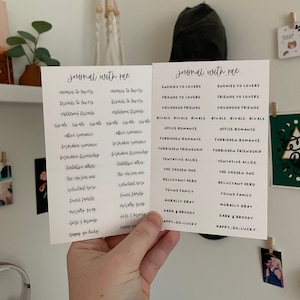 journal with me
enemies to lovers enemies to lovers
friends to lovers friends to lovers
childhood friends childhood friends
rivals rivals rivals rivals
office romance office romance
forbidden romance forbidden romance
forbidden friendship forbidden friendship
tentative allies tentative allies
the chosen one the chosen one
reluctant hero reluctant hero
found family found family
morally gray morally gray
dark & broody dark & broody
happy-go-lucky happy-go-lucky
journal with me
ENEMIES TO LOVERS ENEMIES TO LOVERS
FRIENDS TO LOVERS FRIENDS TO LOVERS
CHILDHOOD FRIENDS CHILDHOOD FRIENDS
RIVALS RIVALS RIVALS RIVALS
OFFICE ROMANCE OFFICE ROMANCE
FORBIDDEN ROMANCE FORBIDDEN ROMANCE
FORBIDDEN FRIENDSHIP FORBIDDEN FRIENDSHIP
TENTATIVE ALLIES TENTATIVE ALLIES
THE CHOSEN ONE THE CHOSEN ONE
RELUCTANT HERO RELUCTANT HERO
FOUND FAMILY FOUND FAMILY
MORALLY GRAY MORALLY GRAY
DARK & BROODY DARK & BROODY
HAPPY-GO-LUCKY HAPPY-GO-LUCKY